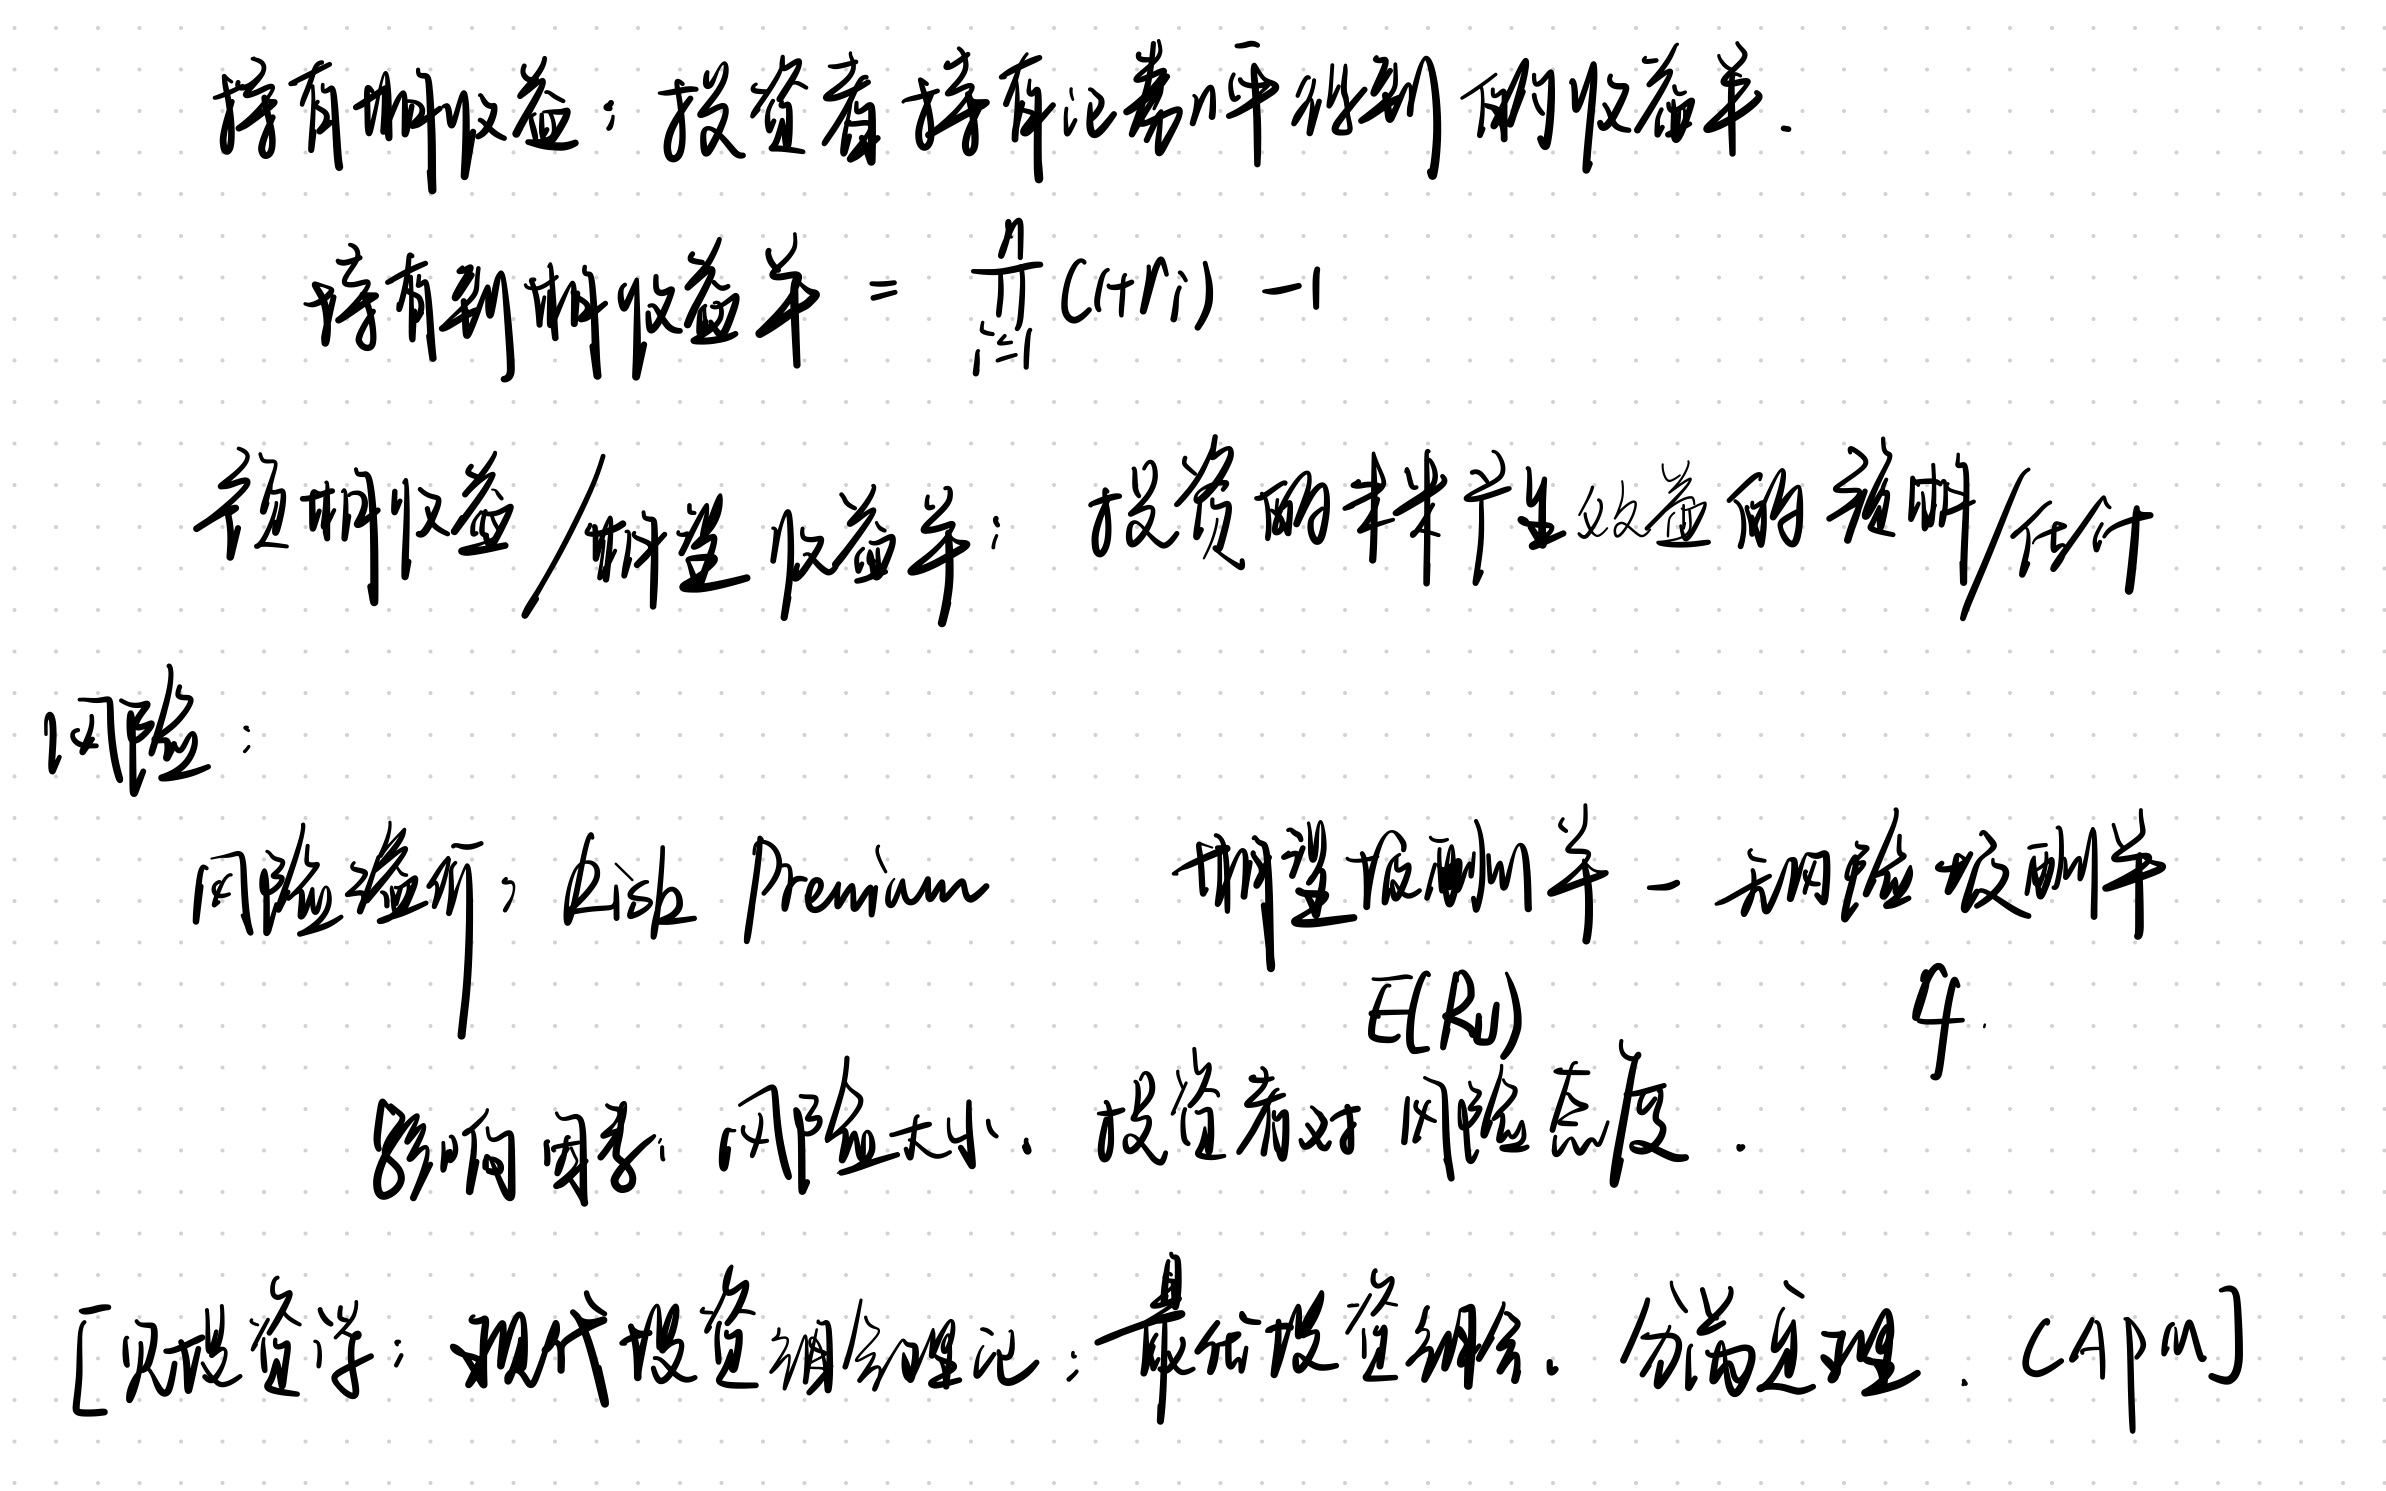 持有期收益：投资者持有证券的一段时间的收益率.
持有期收益率 = ∏ⁿᵢ₌₁(1+ri) -1
预期收益/期望收益率：投资的未来产生收益的预期/估计
风险：
风险溢价：Risk Premium 期望收益率 - 无风险收益率
E(Ri) rf.
影响因素：风险大小. 投资者对风险态度.
[见投资学：现代投资组合理论：最优投资组合. 分离定理. CAPM]